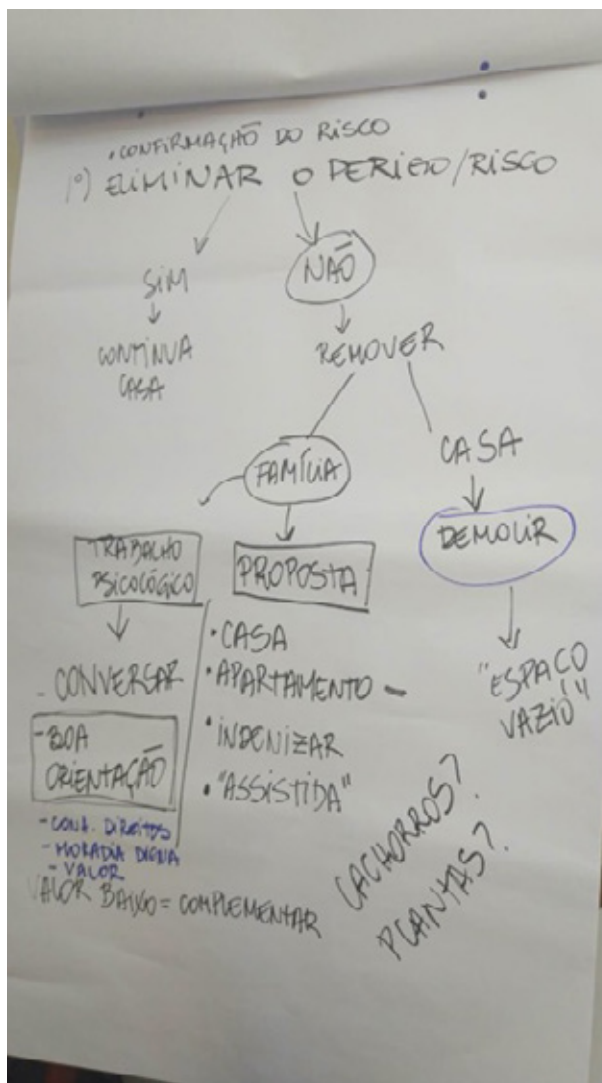 • CONFIRMAÇÃO DO RISCO
1º) ELIMINAR O PERIGO/RISCO
SIM
NÃO
CONTINUA
CASA
REMOVER
FAMÍLIA
CASA
DEMOLIR
"ESPAÇO
VAZIO"
TRABALHO
PSICOLÓGICO
- CONVERSAR
- BOA
ORIENTAÇÃO
- CONH. DIREITOS
- MORADIA DIGNA
- VALOR
VALOR BAIXO = COMPLEMENTAR
PROPOSTA
• CASA
• APARTAMENTO -
• INDENIZAR
• "ASSISTIDA"
CACHORROS?
PLANTAS?